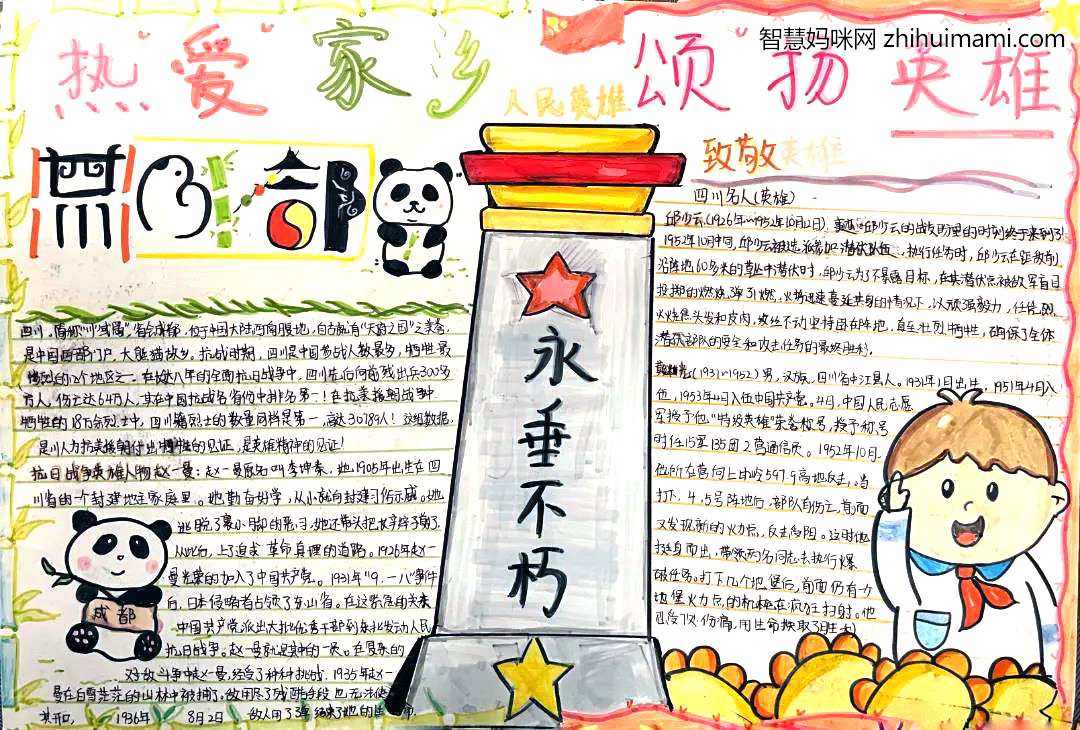 智慧妈咪网 zhihuimami.com
热爱家乡
人民英雄
颂扬英雄
成都
致敬英雄
四川,简称"川"或"蜀",省会成都,位于中国大陆西南腹地,自古就有"天府之国"之美誉,
是中国西部门户,大熊猫故乡。抗战时期,四川是中国参战人数最多,牺牲最
惨烈的地区之一。在the八年的全面抗日战争中,四川先后向前线出兵300多
万人,伤亡达64万人,其在中国抗战各省份中排名第一!在抗美援朝战争中
牺牲的18万余烈士中,四川籍烈士的数量同样是第一,高达30789人!这组数据,
是川人为抗美援朝付出牺牲的见证,是英雄精神的见证!
抗日战争英雄人物赵一曼:赵一曼原名叫李坤泰,她1905年出生在四
川省的一个封建地主家庭里。她勤奋好学,从小就向封建习俗示威。她
逃脱了裹小脚的恶习,她还带头把长辫子剪了,
从此后,上了追求革命真理的道路。1926年赵一
曼光荣的加入了中国共产党。1931年"9.一八"事件
后,日本侵略者占领了东山省。在这紧急的关头
中国共产党派出大批优秀干部到东北发动人民
抗日战争。赵一曼就是其中的一员。在艰苦的
对敌斗争中赵一曼,经受了种种挑战,1935年赵一
曼在白雪茫茫的山林中被捕了,敌用尽了残酷手段也无法使
其开口,1936年8月2日
成都
永垂不朽
四川名人(英雄)
邱少云(1926年~1952年10月12日),
1952年10月中旬,邱少云被选派参加潜伏部队,执行任务时,邱少云在距敌前
沿阵地60多米的草丛中潜伏时,邱少云为了不暴露目标,在其潜伏点被敌军盲目
投掷的燃烧弹引燃,火势迅速蔓延其身的情况下,以顽强毅力,任凭烈
火烧焦头发和皮肉,数丝不动坚持卧在阵地,直至壮烈牺牲,确保了全体
潜伏部队的安全和攻击任务的最终胜利。
(1931~1952)男,汉族,四川省中江县人。1931年1月出生,1951年4月入
伍,1953年4月入伍中国共产党。4月,中国人民志愿
军授予他"特级英雄"荣誉称号,授予称号
时任15军135团2营通信员。1952年10月,
他所在营向上甘岭597.9高地反击。当
打下,4,5号阵地后,部队有伤亡,前面
又发现新的火力点,反击受阻。这时他
挺身而出,带领两名同志去执行爆
破任务。打下几个地堡后,前面仍有一个
地堡火力点的机枪在疯狂扫射。他
忍受伤痛,用生命换取了胜利